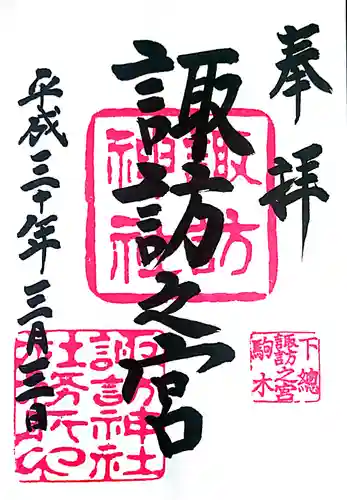 奉拝
諏訪之宮
平成三十年三月三日
諏訪神社
下總
諏訪之宮
駒木
諏訪神社
社務所印